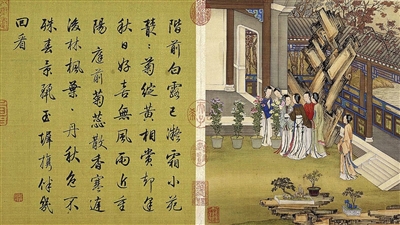 階前白露已凝霜小苑
菊綻黃相賞却逢
秋日好喜無風雨近重
陽庭前菊蕊散香寒
後林楓葉丹秋色不
殊春景麗玉墀攜伴幾
回看